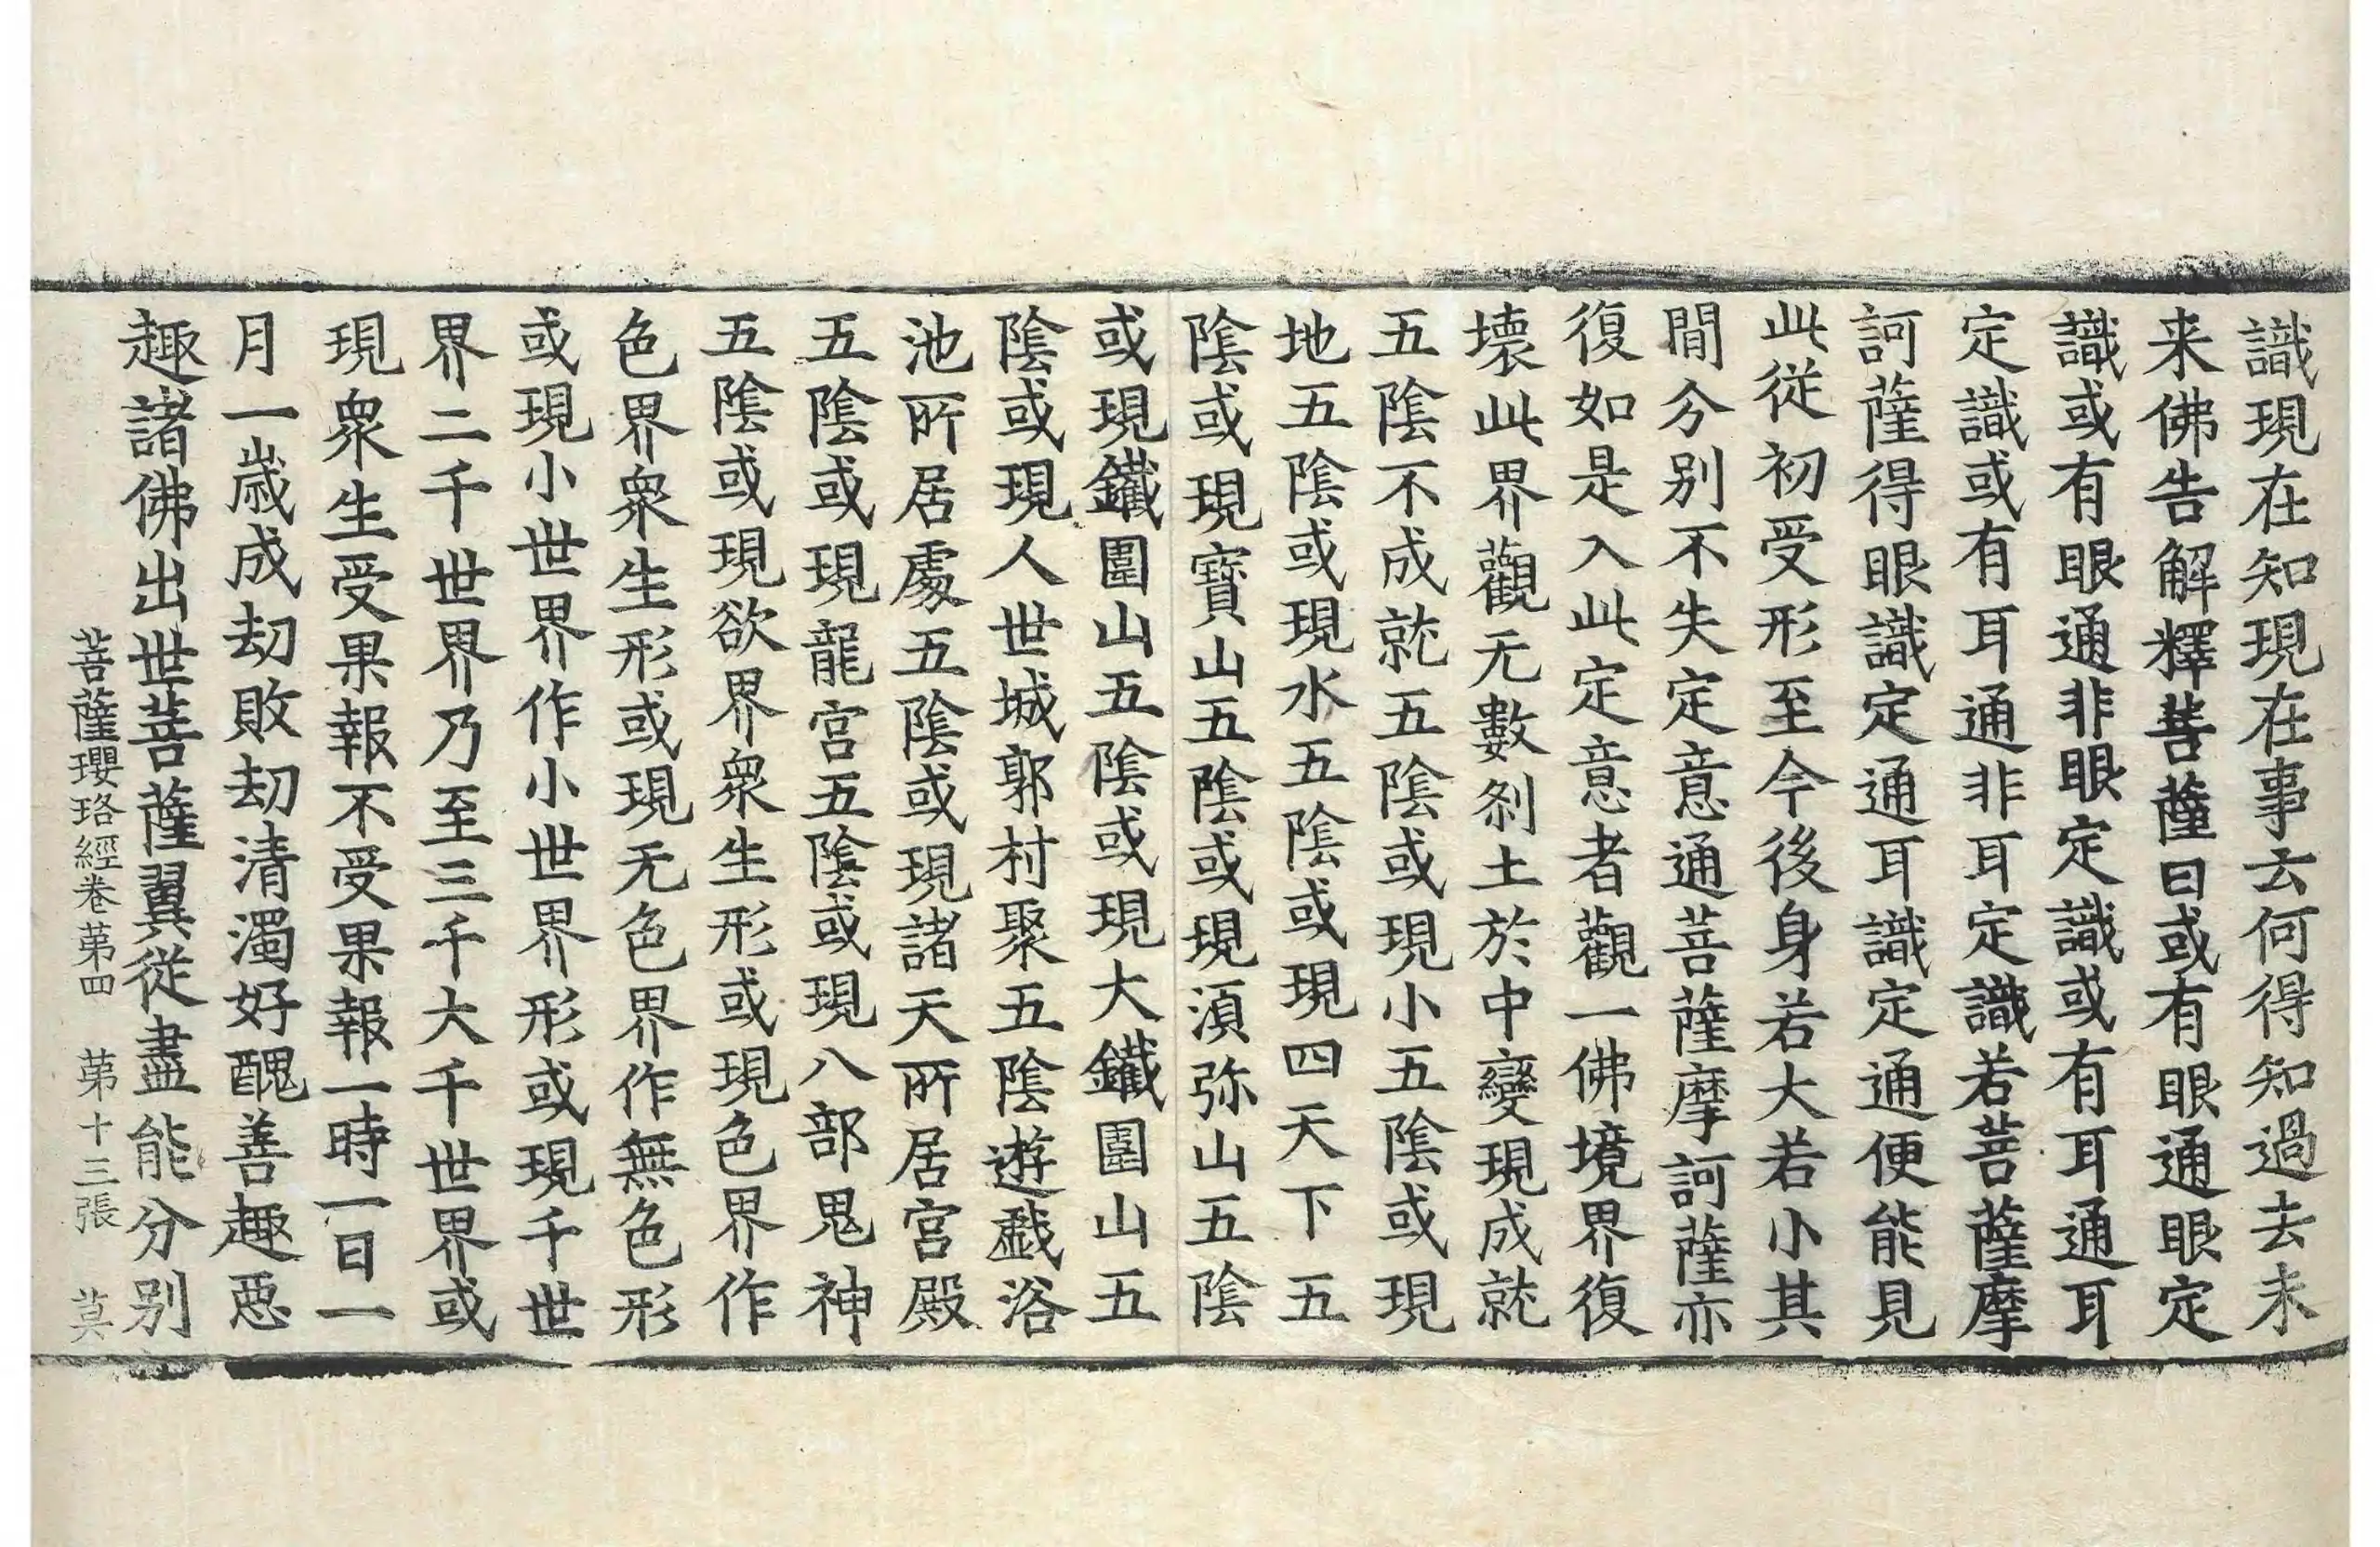 識現在知現在事云何得知過去未
来佛告解釋菩薩曰或有眼通眼定
識或有眼通非眼定識或有耳通耳
定識或有耳通非耳定識若菩薩摩
訶薩得眼識定通耳識定通便能見
此從初受形至今後身若大若小其
間分別不失定意通菩薩摩訶薩亦
復如是入此定意者觀一佛境界復
壞此界觀无數刹土於中變現成就
五陰不成就五陰或現小五陰或現
地五陰或現水五陰或現四天下五
陰或現寶山五陰或現湏弥山五陰
或現鐵圍山五陰或現大鐵圍山五
陰或現人世城郭村聚五陰遊戲浴
池所居處五陰或現諸天所居宮殿
五陰或現龍宮五陰或現八部鬼神
五陰或現欲界衆生形或現色界作
色界衆生形或現无色界作無色形
或現小世界作小世界形或現千世
界二千世界乃至三千大千世界或
現衆生受果報不受果報一時一日一
月一歲成劫敗劫清濁好醜善趣惡
趣諸佛出世菩薩翼從盡能分別
菩薩瓔珞經卷苐四 苐十三張 莫